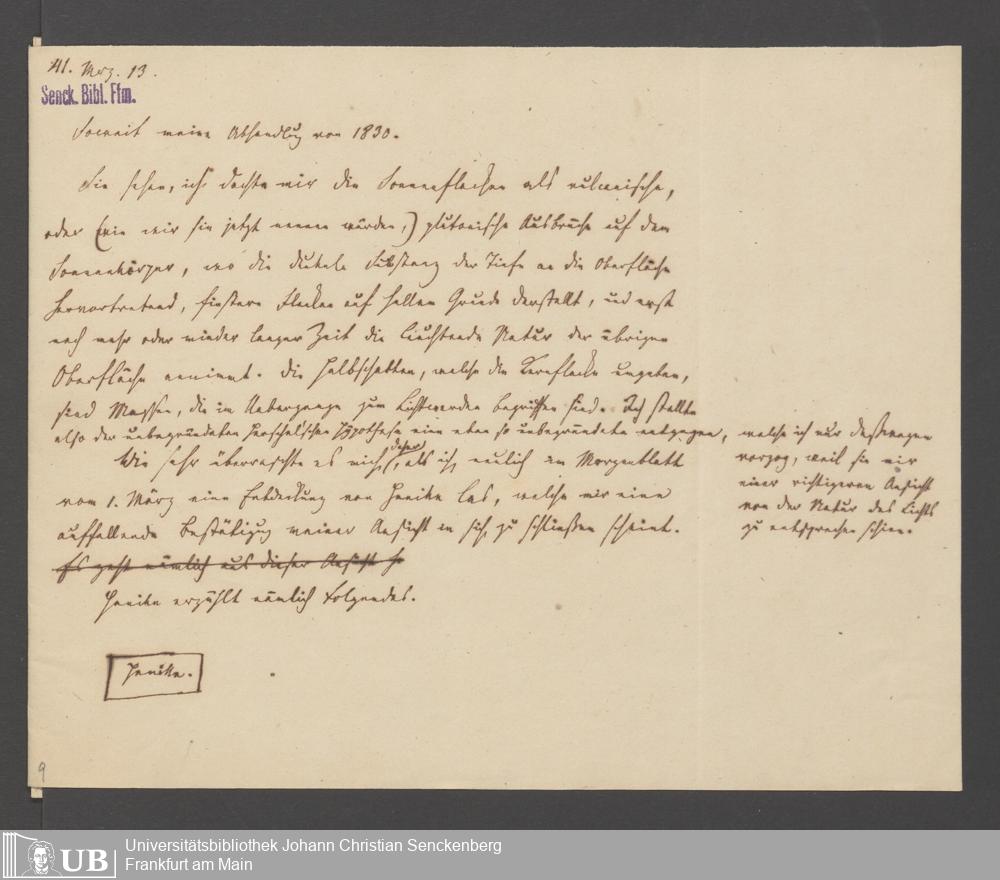 41. Mrz. 13.
Senck. Bibl. Ffm.
Soweit meine Abhandlug von 1830.
Sie sehen, ich dachte mir die Sonnenflecken als vulcanische,
oder (wie wir sie jetzt nennen würden,) plutonische Ausbrüche auf dem
Sonnenkörper, wo die dukele Substanz der Tiefe an die Oberfläche
hervortretend, finstere Flecken auf hellem Grunde darstellt, und erst
nach mehr oder minder langer Zeit die leuchtende Natur der übrigen
Oberfläche annimmt. Die Halbschatten, welche die Kernflecke umgeben,
sind Massen, die im Uebergange zum Lichtwerden begriffen sind. Ich stellte
also der unbegründeten Herschel'schen Hypothese eine eben so unbegründete entgegen, welche ich nur deßwegen
vorzog, weil sie mir
einer richtigeren Ansicht
von der Natur des Lichts
zu entsprechen schien.
Wie sehr überraschte es mich daher, als ich neulich im Morgenblatt
vom 1. März eine Entdeckung von Henike las, welche mir eine
auffallende Bestätigug meiner Ansicht in sich zu schließen scheint.
Es geht nämlich aus dieser Ansicht h
Henike erzählt nämlich Folgendes.
Henike.
9
UB
Universitätsbibliothek Johann Christian Senckenberg
Frankfurt am Main